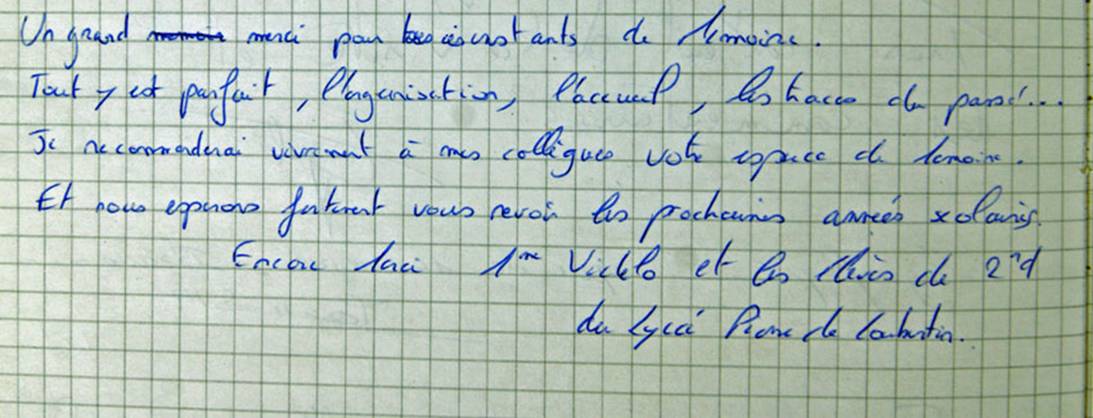 Un grand merci pour ces instants de Mémoire.
Tout y est parfait, l'organisation, l'accueil, les traces du passé...
Je recommanderai vivement à mes collègues votre espace de Mémoire.
Et nous esperons fortement vous revoir les prochaines années scolaires.
Encore Merci Mme et les élèves de 2nd
du Lycée Pierre de Coubertin.